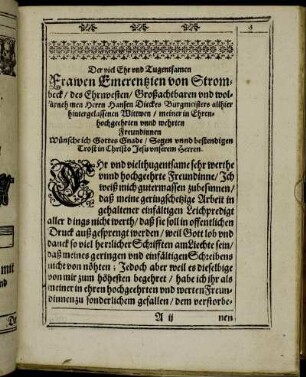 Der viel Ehr vnd Tugentsamen
Frawen Emerentzien von Strom-
beck / des Ehrnvesten / Großachtbaren vnd wol-
vürneh men Herrn Hansen Dieckes Burgmeisters allhier
hintergelassenen Wittwen / meiner in Ehren-
hochgeehrten vnnd wehrten
Freundinnen
Wünsche ich Gottes Gnade / Segen vnnd bestendigen
Trost in Christo Jesu vnserem Herren.
Ehr vnd vielthugentsame sehr werthe
vnnd hochgeehrte Freundinne / Ich
weiß mich gutermassen zubesinnen /
daß meine geringschetzige Arbeit in
gehaltener einfältigen Leichpredigt
aller dings nicht werth / daß sie soll in offentlichen
Druck auß gesprengt werden / weil Gott lob vnd
danck so viel herrlicher Schrifften am Liechte sein /
daß meines geringen vnd einfältigen Schreibens
nicht von nöhten ; Jedoch aber weil es dieselbige
von mir zum höhesten begehret / habe ich ihr als
meiner in ehren hochgeehrten vnd werten Freun-
dinnen zu sonderlichem gefallen / dem verstorbe-
A ij nen